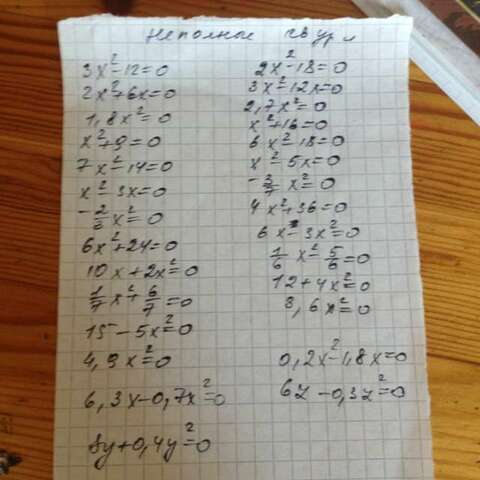 Неполные кв ур
3x²-12=0
2x²+6x=0
1,8x²=0
x²+9=0
7x²-14=0
x²-3x=0
-2/3x²=0
6x²+24=0
10x+2x²=0
1/7x²+6/7=0
15-5x²=0
4,9x²=0
6,3x-0,7x²=0
8y+0,4y²=0
2x²-18=0
3x²-12x=0
2,7x²=0
x²+16=0
6x²-18=0
x²-5x=0
-3/7x²=0
4x²+36=0
6x-3x²=0
1/6x²-5/6=0
12+4x²=0
3,6x²=0
0,2x²-1,8x=0
6z-0,3z²=0